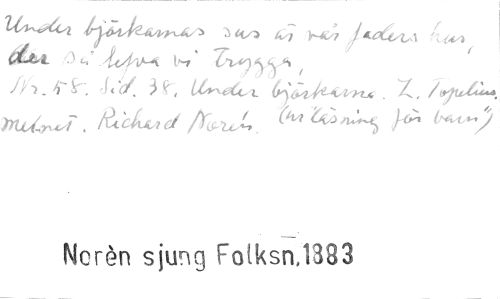 Under björkarnas sus är vår faders hus,
der så lefva vi trygga,
Nr. 58. Sid. 38. Under björkarna. Z. Topelius.
Richard Norén. (ur "läsning för barn")
Norèn sjung Folksn,1883